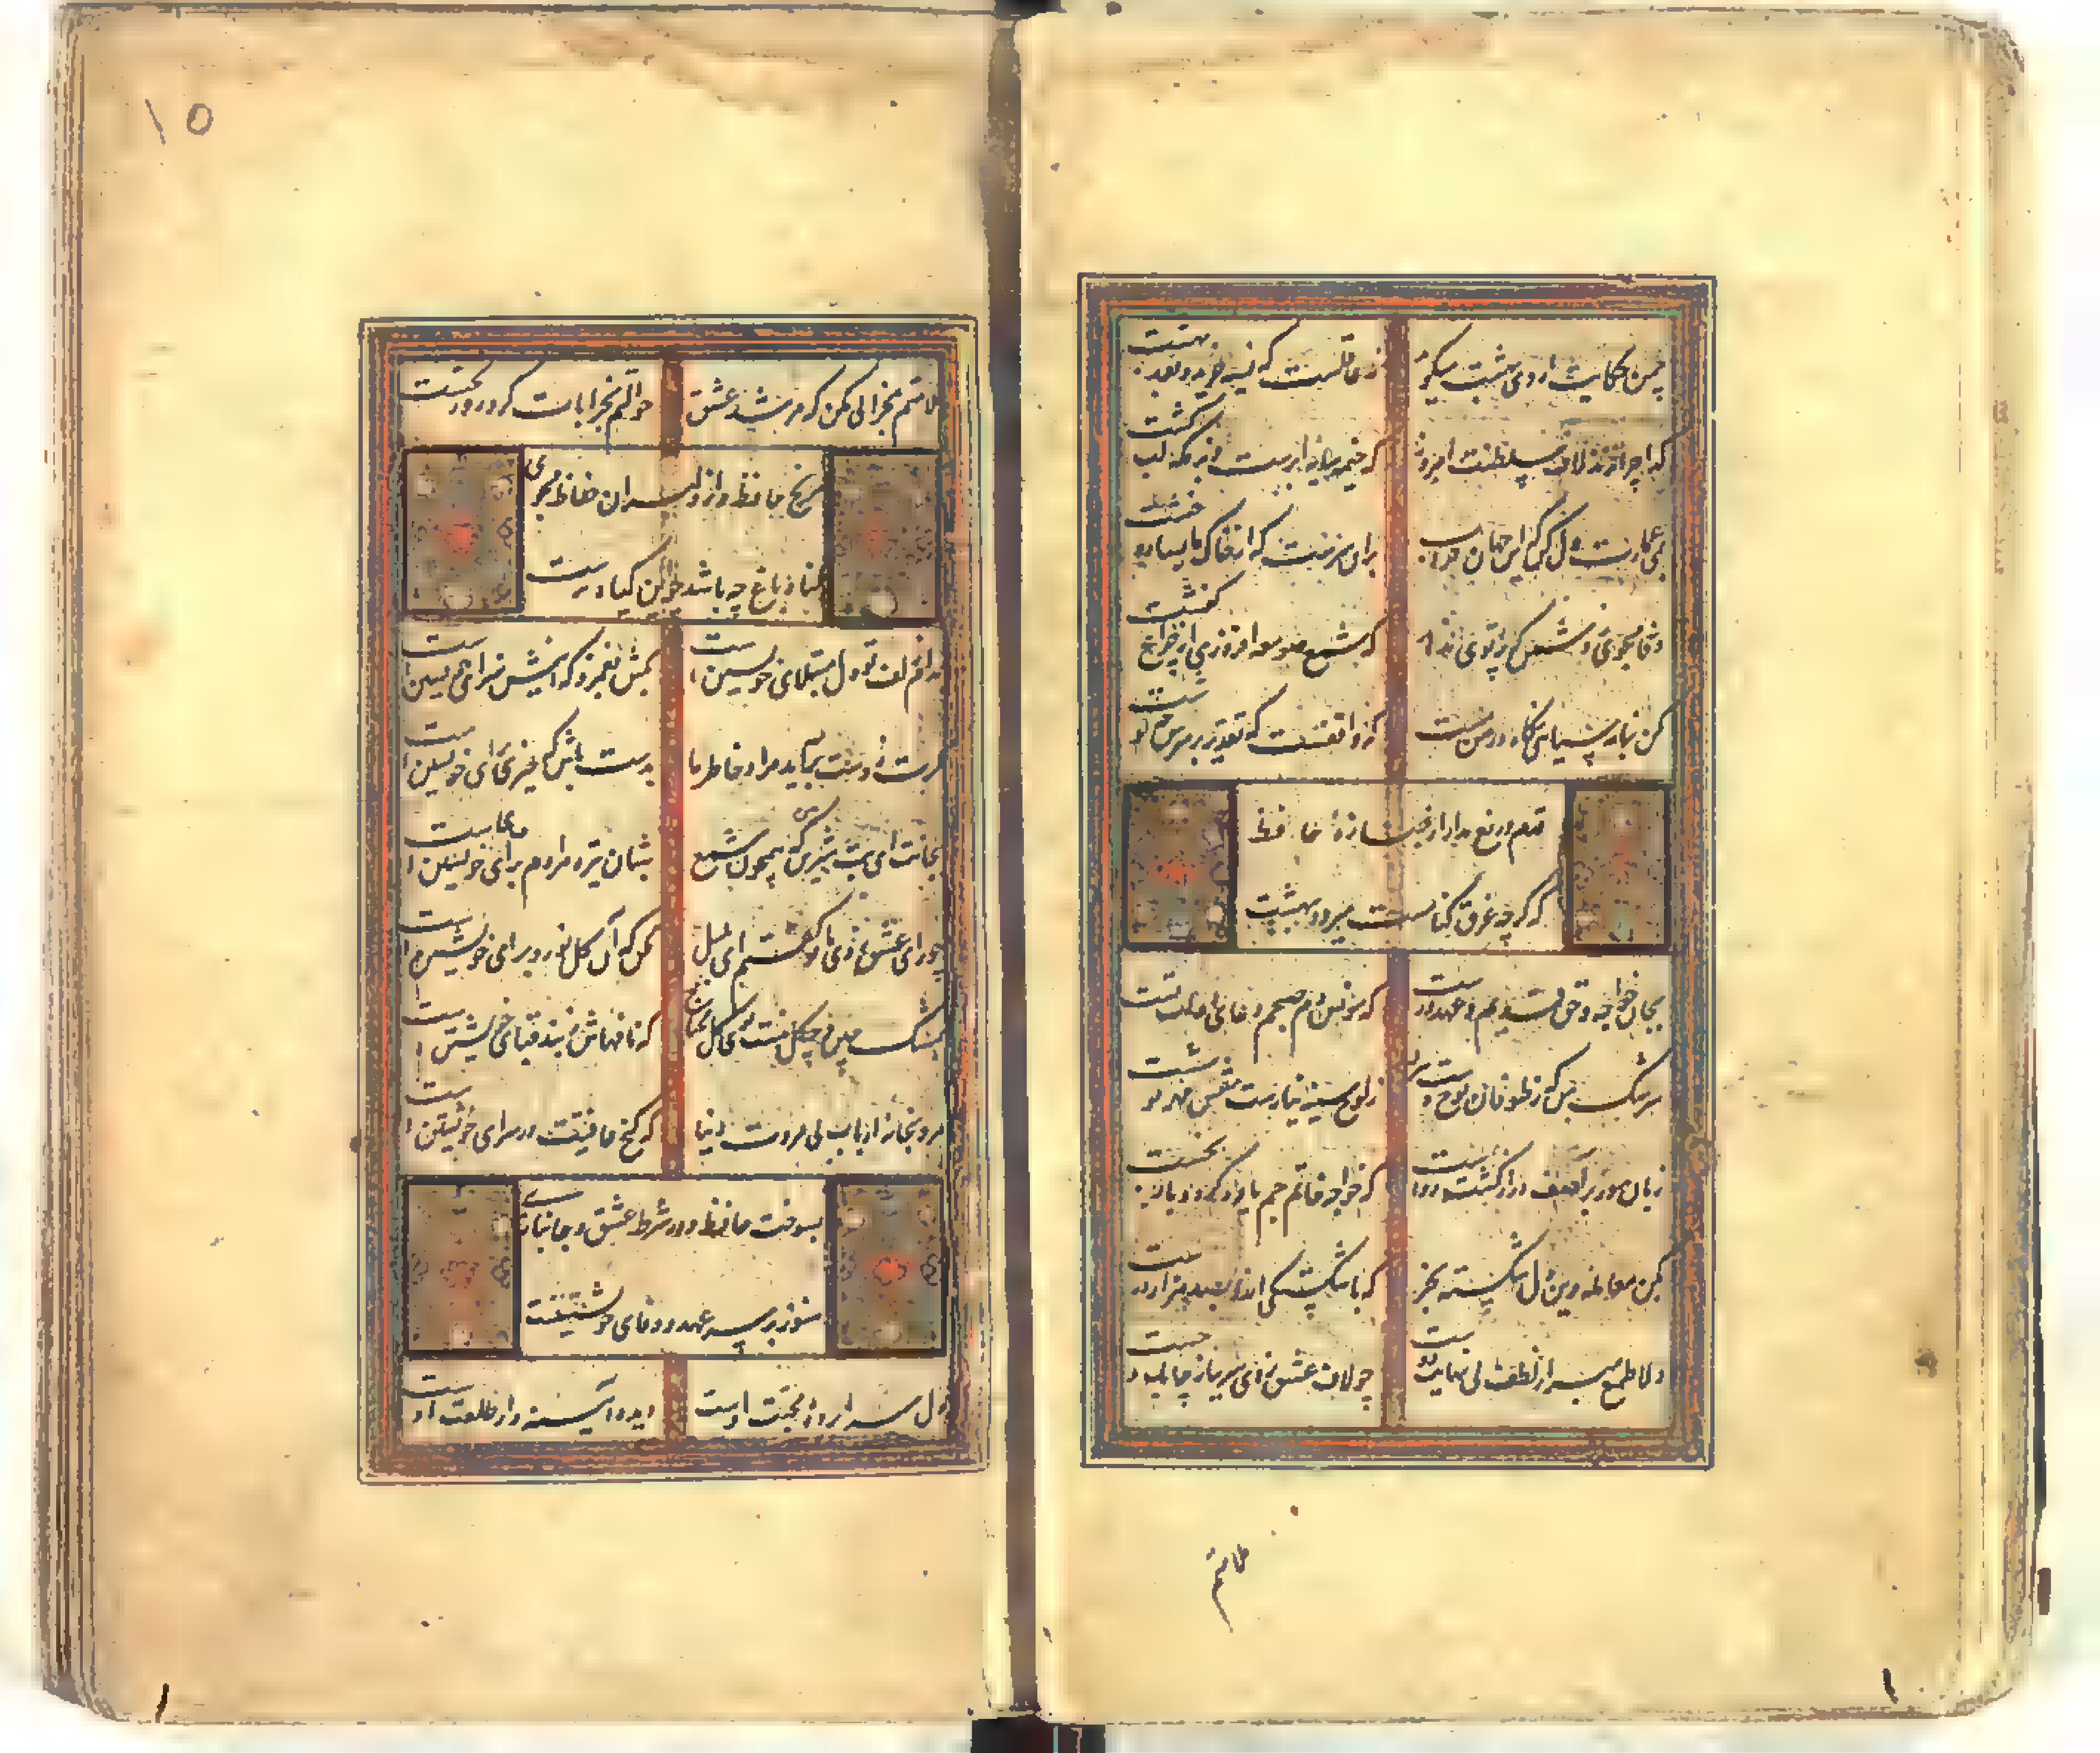 چمن حکایت اردیبهشت میکوید
نه عاقلست که نسیه خرید و نقد بهشت
کدا چرا نزند لاف سلطنت امروز
که خیمه سایه ابرست و بزمکه لب کشت
بمی عمارت دل کن که این جهان خراب
برای سرست که از خاک ما بسازد خشت
وفا مجوی ز دشمن که پرتوی ندهد
که شمع صومعه افروزی از چراغ کنشت
مکن بنامه سیاهی نکاه در من مست
که واقفست که تقدیر بر سرش چه نوشت
قدم دریغ مدار از جنازه حافظ
که کر چه غرق کناهست میرود ببهشت
بجان خواجه و حق قدیم و عهد درست
که مونس دم صبحم دعای دولت تست
سرشک من که ز طوفان نوح دست برد
ز لوح سینه نیارست نقش مهر تو شست
زبان مور بر آصف دراز کشت رواست
که خواجه خاتم جم یاوه کرد و باز نجست
بکن معامله وین دل شکسته بخر
که با شکستکی ارزد بصد هزار درست
دلا طمع مبر از لطف بی نهایت دوست
چو لاف عشق زدی سر بباز چابک و چست
ملامتم
۱۵
ملامتم بخرابی مکن که مرشد عشق
حوالتم بخرابات کرد روز نخست
مرنج حافظ و از دلبران حفاظ مجوی
کناه باغ چه باشد چو این کیاه نرست
بدام زلف تو دل مبتلای خویشتن است
بکش بغمزه که اینش سزای خویشتن است
کرت ز دست برآید مراد خاطر ما
بدست باش که خیری بجای خویشتن است
بجانت ای بت شیرین که همچون شمع
شبان تیره مرادم فنای خویشتن است
چو رای عشق زدی با تو کفتم ای بلبل
مکن که آن کل خودرو برای خویشتن است
بمشک چین و چکل نیست بوی کل محتاج
که نافهاش ز بند قبای خویشتن است
مرو بخانه ارباب بی مروت دنیا
که کنج عافیتت در سرای خویشتن است
بسوخت حافظ و در شرط عشق و جانبازی
هنوز بر سر عهد و وفای خویشتنست
دل سراپرده محبت اوست
دیده آیینه دار طلعت اوست